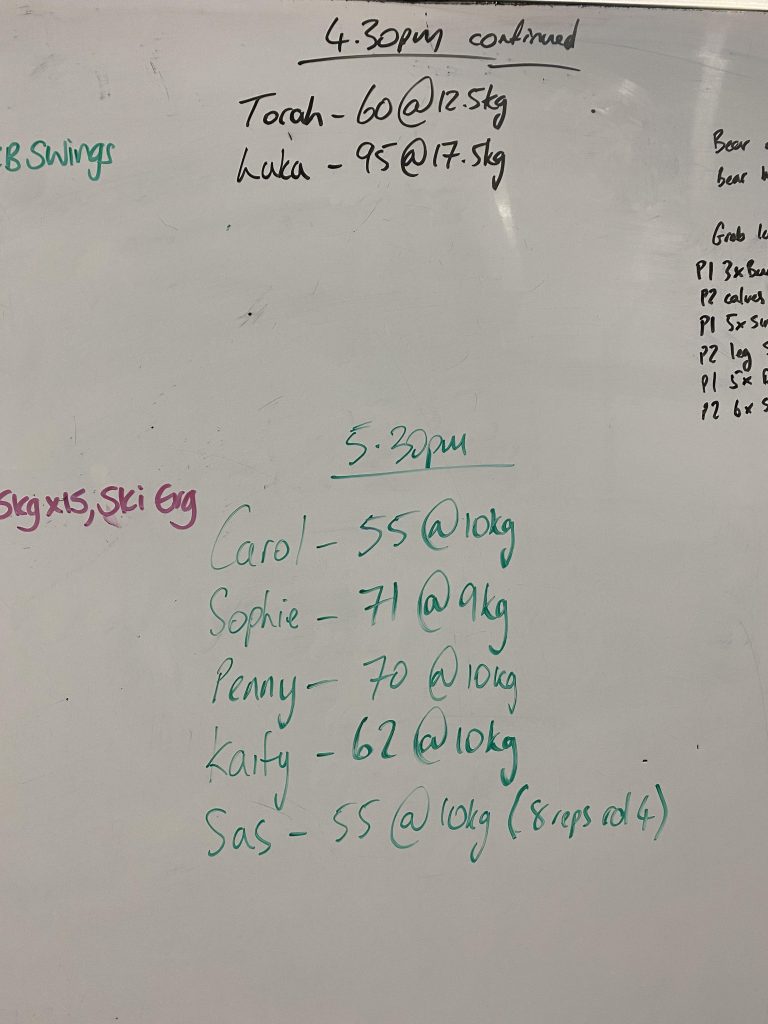 4.30pm continued
Torah - 60 @ 12.5kg
Luka - 95 @ 17.5kg
KB Swings
Bear
bear
Grab
P1 3x
P2 calves
P1 5x
P2 leg
P1 5x
P2 6x
5.30pm
5kg x15, Ski Erg
Carol - 55 @ 10kg
Sophie - 71 @ 9kg
Penny - 70 @ 10kg
Kaity - 62 @ 10kg
Sas - 55 @ 10kg (8 reps rd 4)